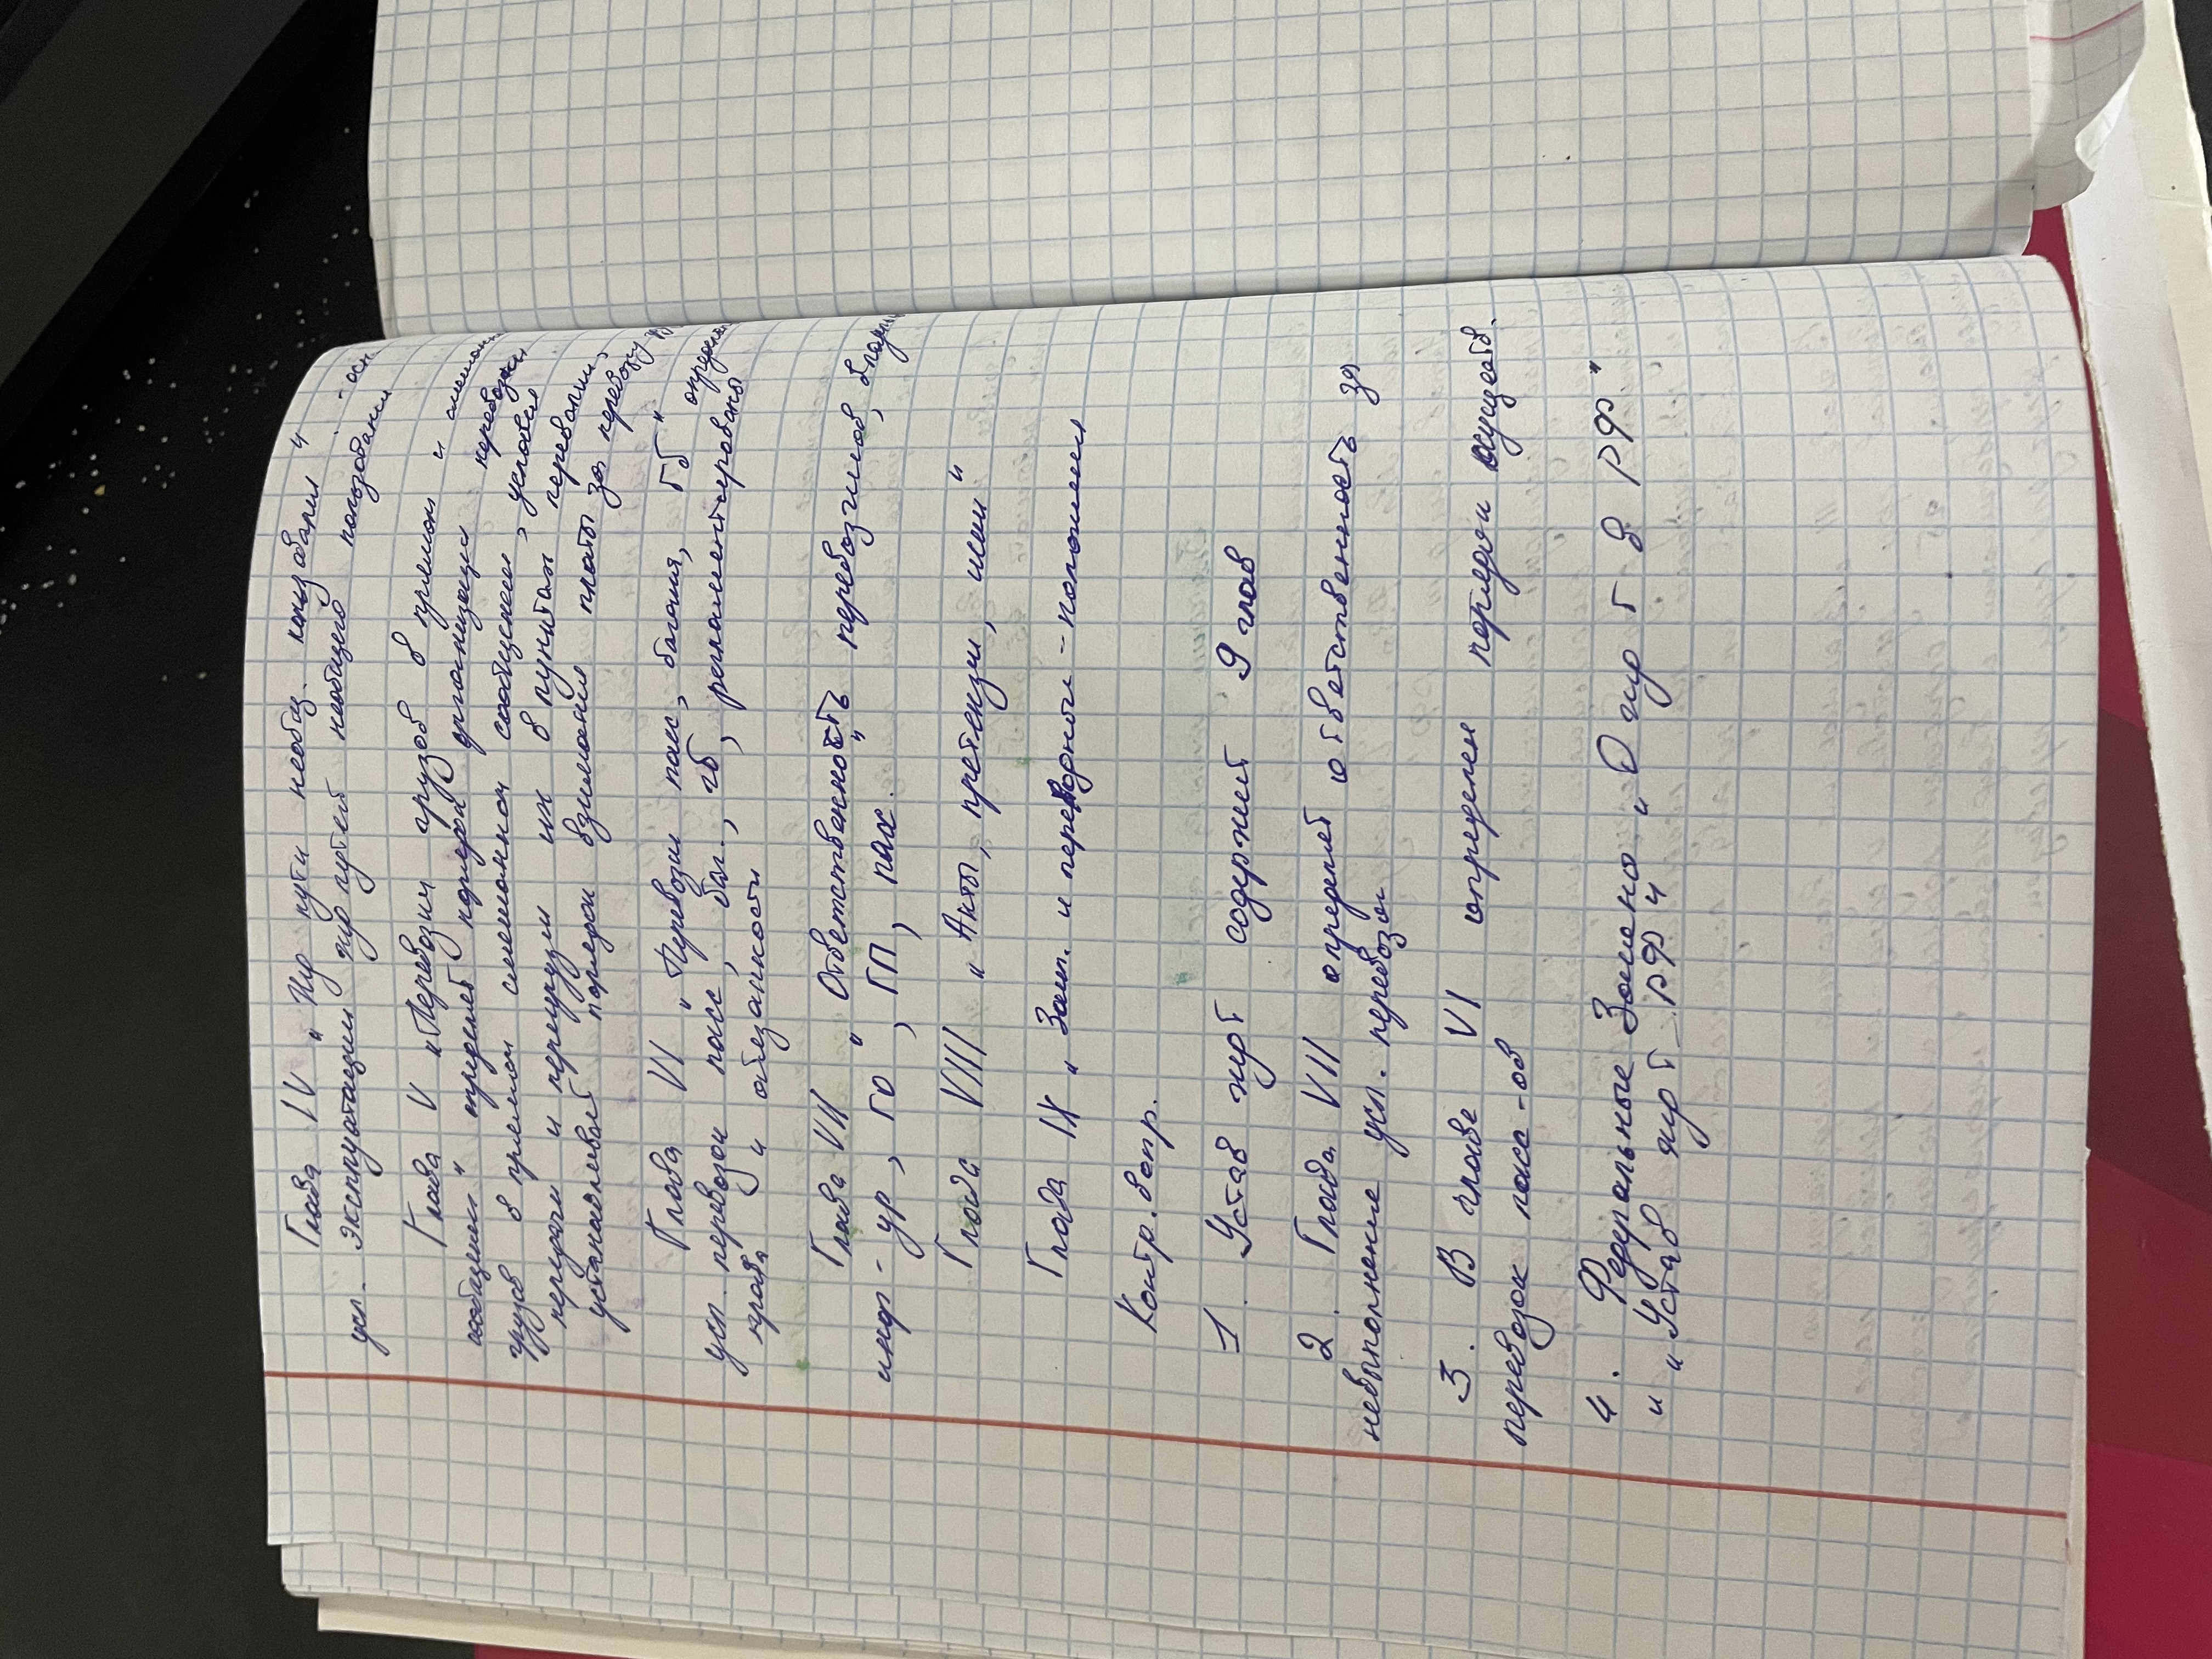 Глава IV „ Жд пути необщ. пользования "
усл. эксплуатации жд путей необщего пользования
Глава V „Перевозки грузов в прямом и смешан
сообщении " определяет порядок организации перевозки
грузов в прямом смешанном сообщении, условия
передачи и перегрузки их в пунктах перевалки,
устанавливает порядок взимания платы за перевозку
Глава VI „ Перевозки пасс, багажа, ГБ " определ
усл. перевозок пасс, баг., гб, регламентированы
права и обязанности
Глава VII „ Ответственность перевозчиков, владел
инф-ур, ГО, ГП, пасс. "
Глава VIII „ Акты, претензии, иски "
Глава IX „ Закл. и переходные-положения
Контр. вопр.
1. Устав жрт содержит 9 глав
2. Глава VII определяет ответственность за
невыполнение усл. перевозок
3. В главе VI определен порядок осуществ.
перевозок пасс-ов
4. Федеральные Законы „ О жд т в РФ "
и „ Устав жд т РФ "